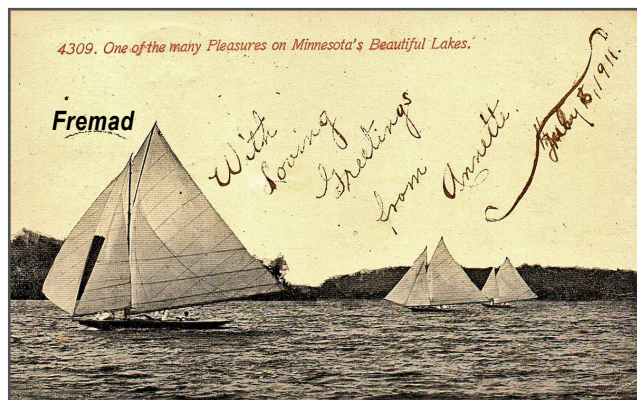 4309. One of the many Pleasures on Minnesota's Beautiful Lakes.
Fremad
With
Loving
Greetings
from
Annette.
July 6, 1911.